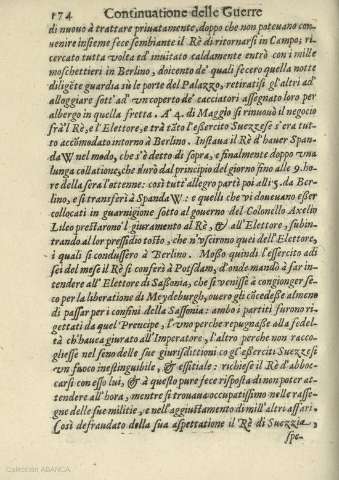 174 Continuatione delle Guerre
di nuovo à trattare priuatamente, doppo che non poteuano con-
uenire insieme fece sembiante il Rè di ritornarsi in Campo; ri-
cercato tutta volta ed inuitato caldamente entrò con i mille
moschettieri in Berlino, doicento de' quali fecero quella notte
diligẽte guardia sù le porte del Palazzo, retiratisi gl'altri ad
alloggiare sott'ad vn coperto de' cacciatori assegnato loro per
albergo in quella fretta. A' 4. di Maggio si rinuouò il negocio
frà'l Rè, e l'Elettore, e trà tãto l'essercito Suezzese s'era tut-
to accõmodato intorno à Berlino. Instaua il Rè d'hauer Span-
daW nel modo, che s'è detto di sopra, e finalmente doppo vna
lunga collatione, che durò dal principio del giorno fino alle 9. ho-
re della sera l'ottenne: così tutt'allegro partì poi alli 5. da Ber-
lino, e si transferì à SpandaW: e quelli che vi doueuano esser
collocati in guarnigione sotto al governo del Colonello Axelin
Lileo prestarono'l giuramento al Rè, & all'Elettore, subin-
trando al lor pressidio tosto, che n'vscirno quei dell'Elettore,
i quali si condussero à Berlino. Mosso quindi l'essercito adi
sei del mese il Rè si conferì à Potsdam, d'onde mandò à far in-
tendere all'Elettore di Sassonia, che si venisse à congionger se-
co per la liberatione di Meydeburgh, ouero gli cõcedesse almeno
di passar per i confini della Sassonia: ambo i partiti furono ri-
gettati da quel Prencipe, l'vno perche repugnasse alla fedel-
tà ch'hauea giurato all'Imperatore, l'altro perche non racco-
gliesse nel seno delle sue giurisdittioni co gl'esserciti Suezzesi
vn fuoco inestinguibile, & essitiale: richiese il Rè d'abboc-
carsi con esso lui, & à questo pure fece risposta di non poter at-
tendere all'hora, mentre si trouaua occupatissimo nelle rasse-
gne delle sue militie, e nell'aggiustamento di mill'altri affari.
Così defraudato della sua aspettatione il Rè di Suezzia,
spe-
Colección ABANCA